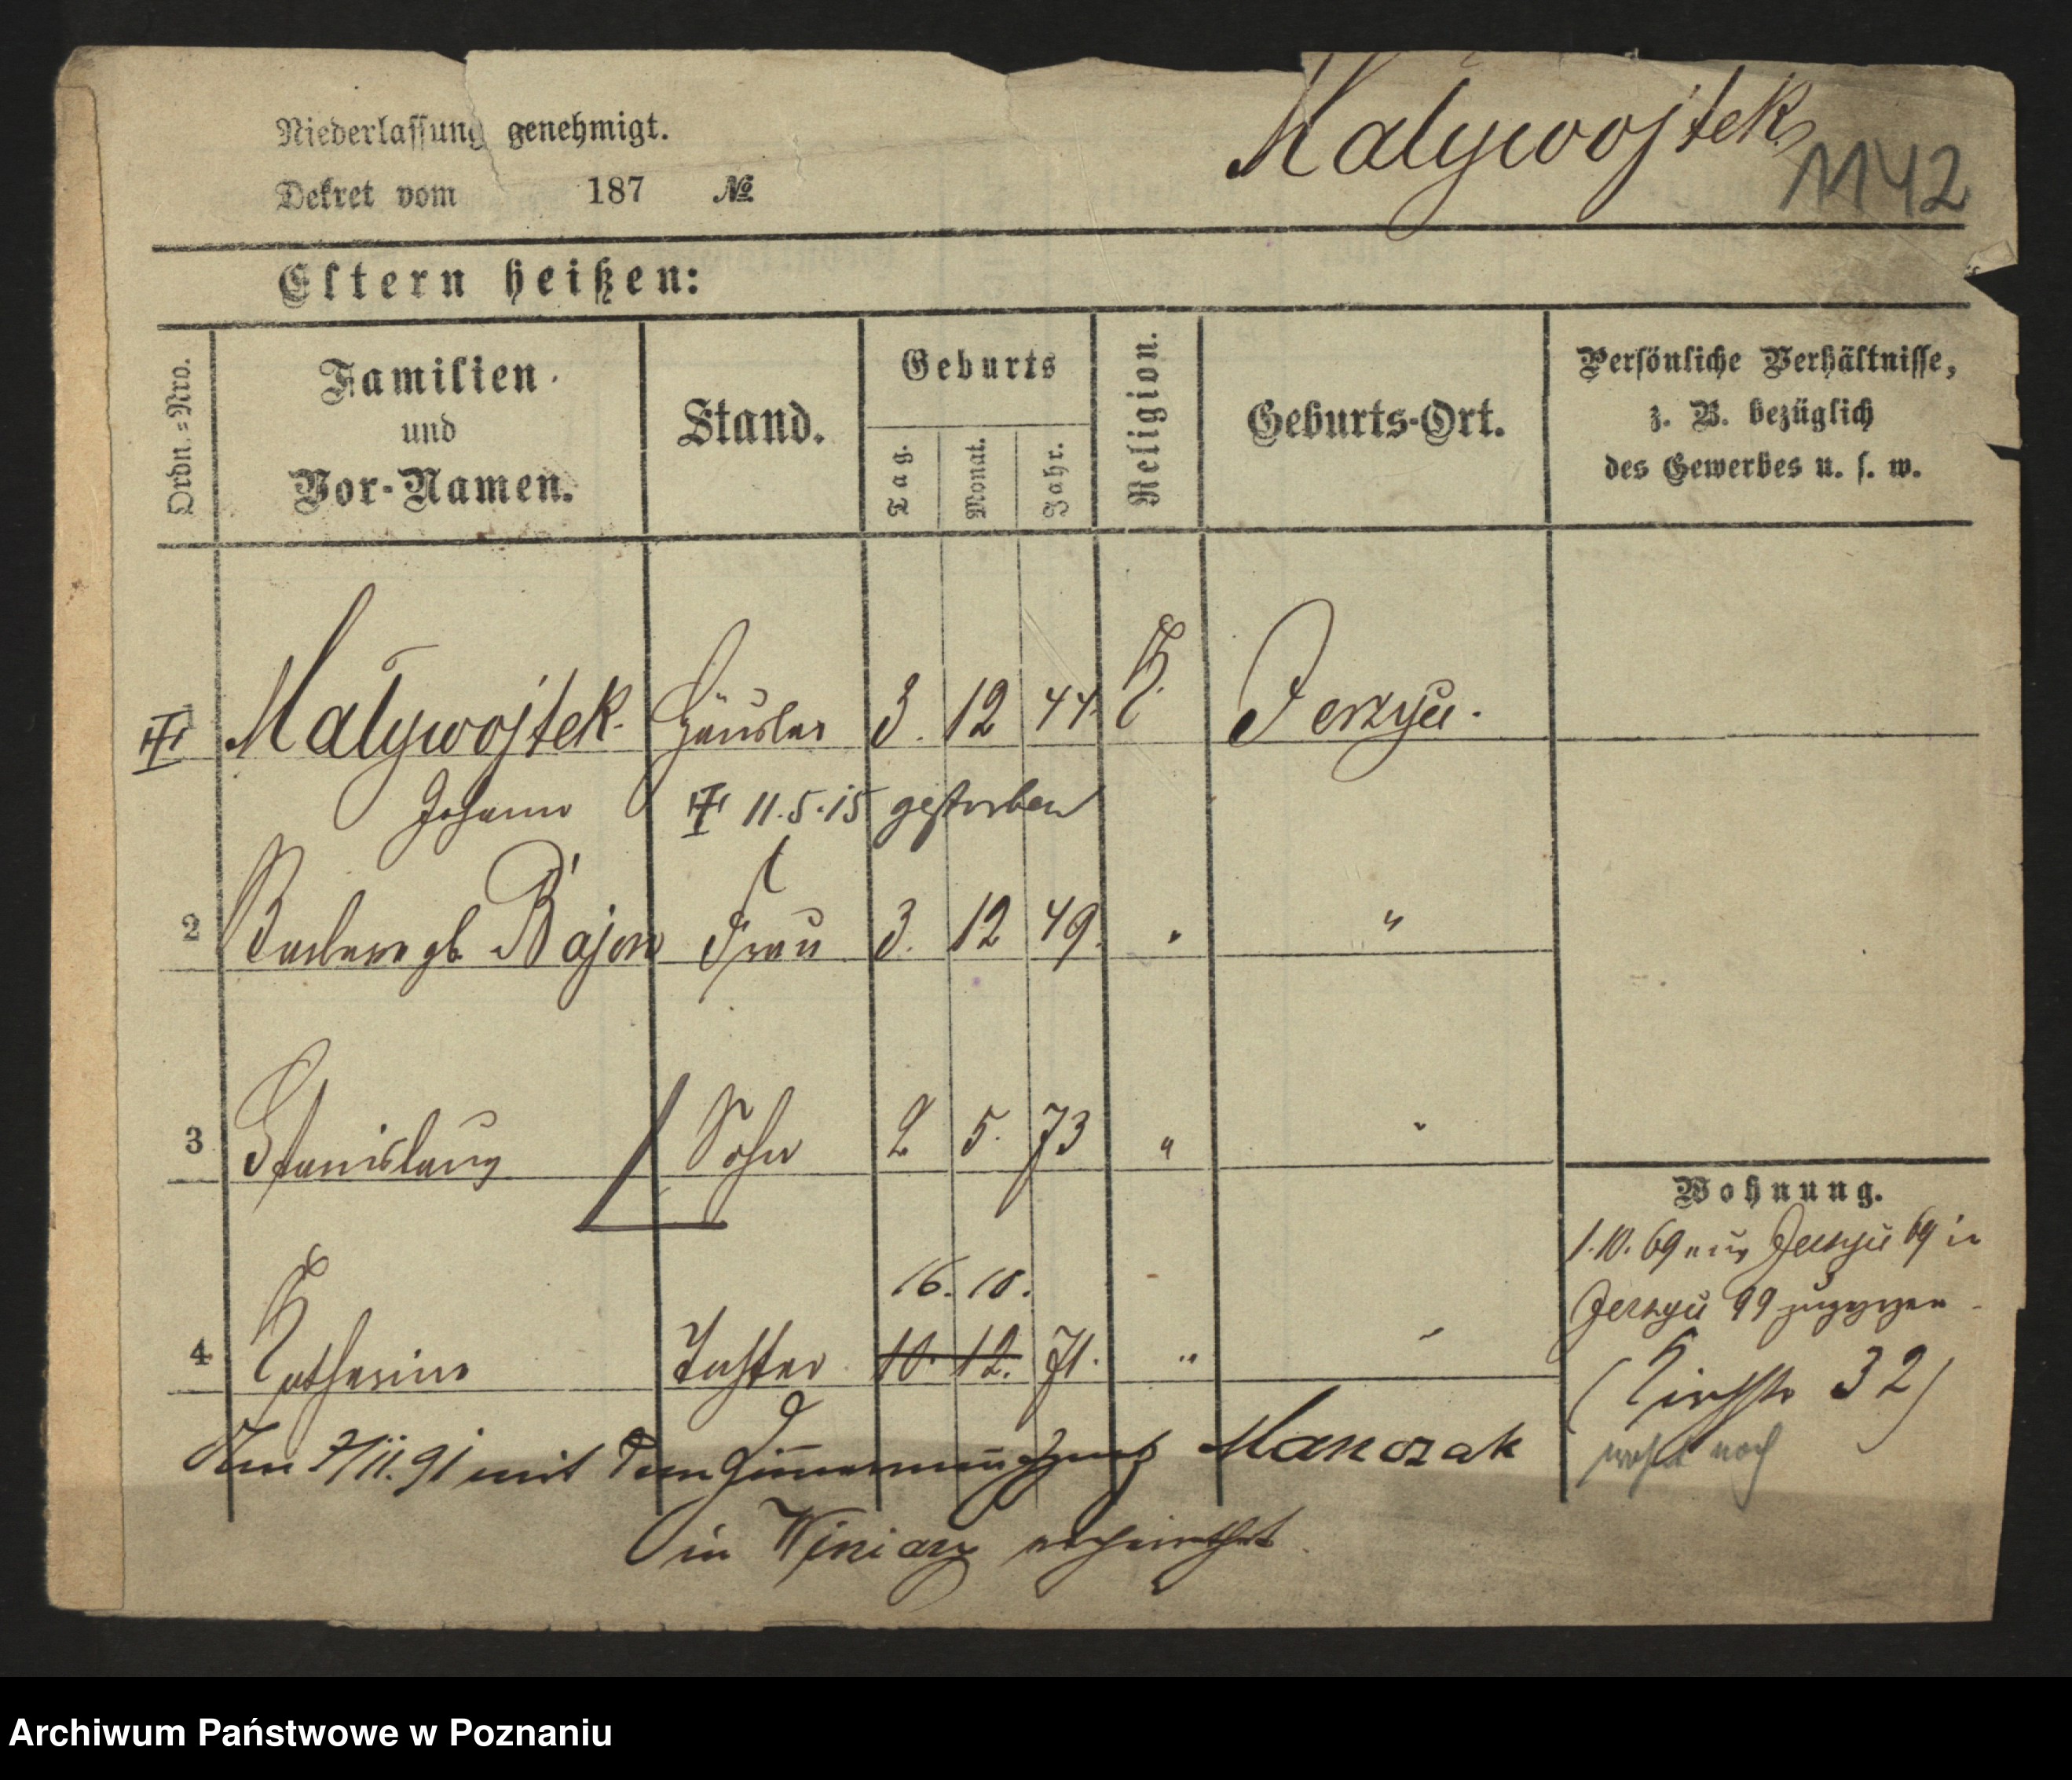 Maływojtek
1142
Niederlassung genehmigt.
Dekret vom 187 №
Eltern heißen:
Ordn.=Nro.
Familien
und
Vor-Namen.
Stand.
Geburts
Tag.
Monat.
Jahr.
Religion.
Geburts-Ort.
Persönliche Verhältnisse,
z. B. bezüglich
des Gewerbes u. s. w.
Maływojtek. Häusler 3. 12 44. K. Jerzyu.
Johann 11.5.15 gestorben
2 Barbara gb. Bajon Frau 3. 12 49. " "
3 Stanislaus Sohn 2 5. 73 " "
16. 10.
4 Katharina Tochter 10. 12. 71. " "
Wohnung.
1.10.69 aus Jerzyu 69 in
Jerzyu 99 zugezogen
(Kirchstr 32)
wohnt noch
Am 7/11.91 mit dem Manczak
in Winiary verheirathet